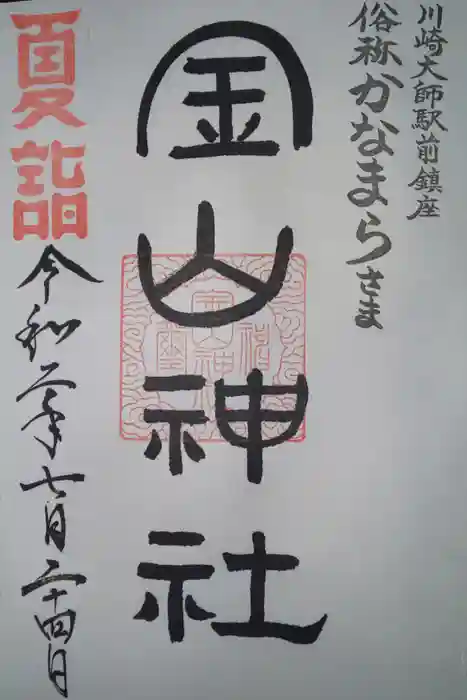 川崎大師駅前鎮座
俗称かなまらさま
金山神社
夏詣
令和二年七月二十四日